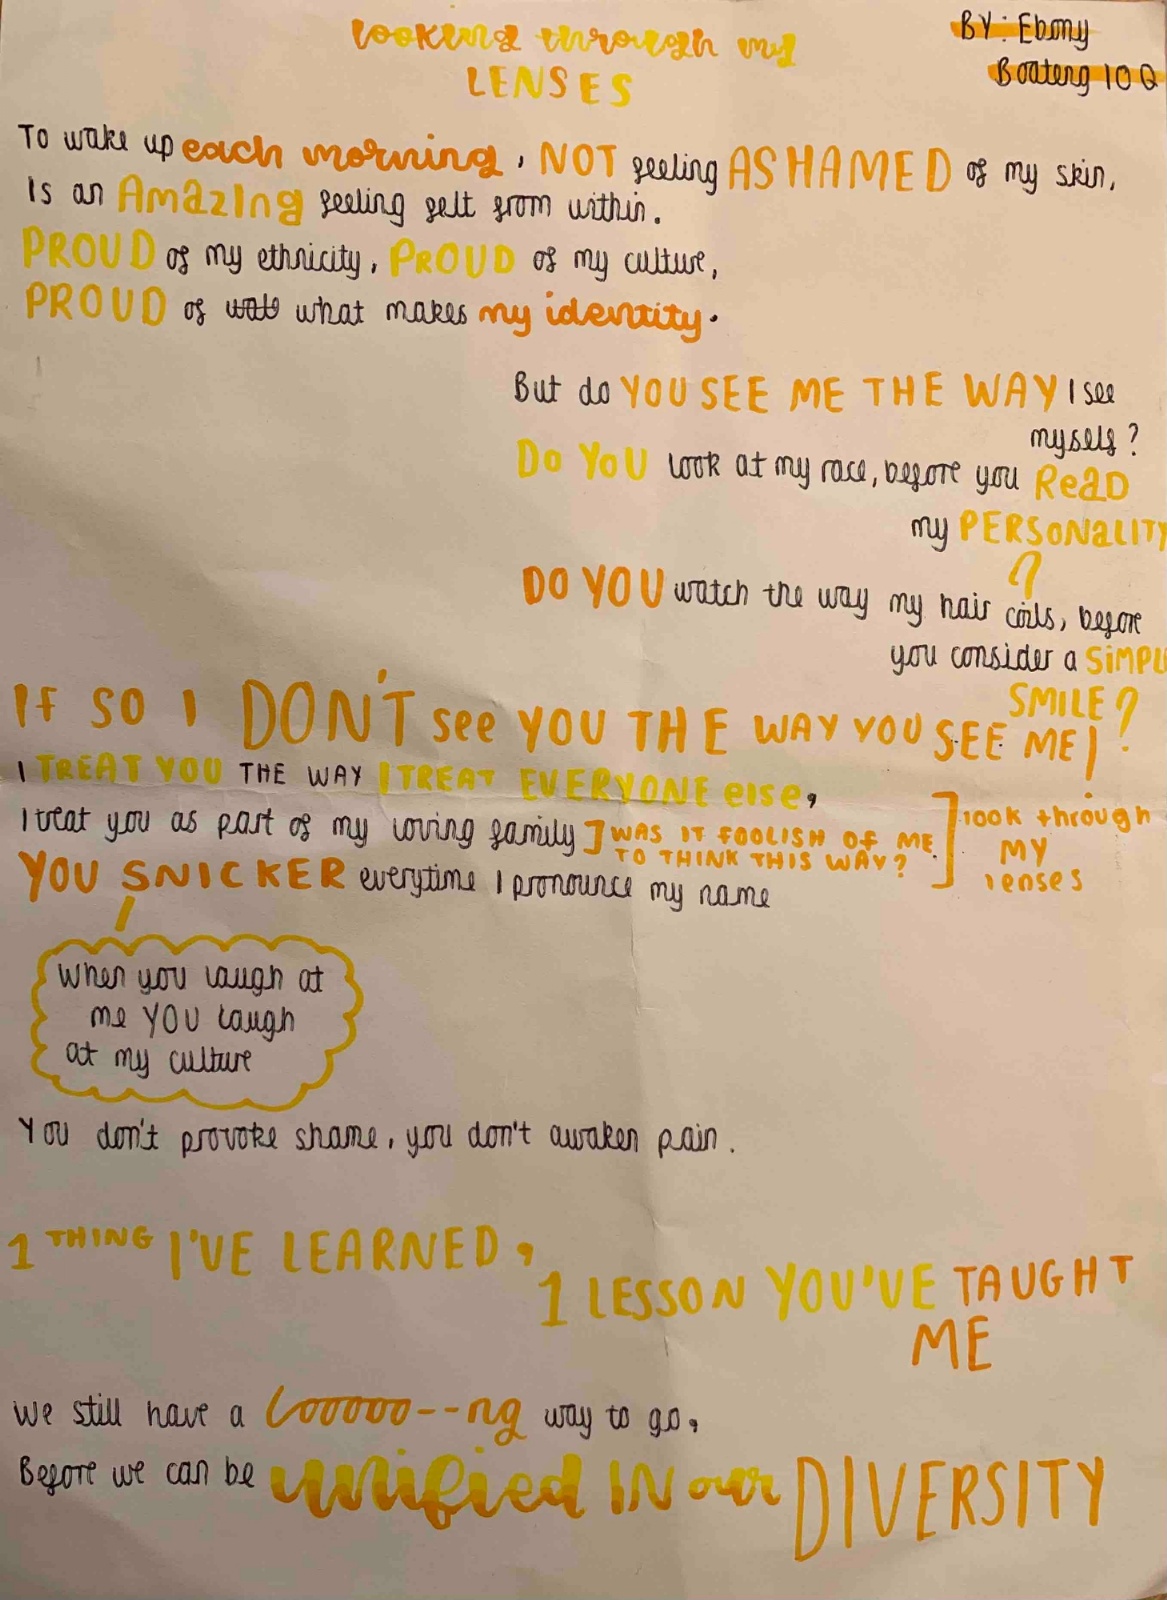 looking through my
LENSES
BY: Ebony
Boateng 10Q
To wake up each morning, NOT feeling ASHAMED of my skin,
Is an Amazing feeling felt from within.
PROUD of my ethnicity, PROUD of my culture,
PROUD of what makes my identity.
But do YOU SEE ME THE WAY I see
myself?
Do YOU look at my race, before you ReaD
my PERSONALITY
?
DO YOU watch the way my hair coils, before
you consider a SiMPL
SMILE?
IF SO I DON'T see YOU THE WAY YOU SEE ME!
I TREAT YOU THE WAY I TREAT EVERYONE else,
I treat you as part of my loving family ] WAS IT FOOLISH OF ME
TO THINK THIS WAY?
] look through
MY
lenses
YOU SNICKER everytime I pronounce my name
When you laugh at
me YOU laugh
at my culture
You don't provoke shame, you don't awaken pain.
1 THING I'VE LEARNED,
1 LESSON YOU'VE TAUGHT
ME
We still have a Looooo--ng way to go,
Before we can be unified IN our DIVERSITY